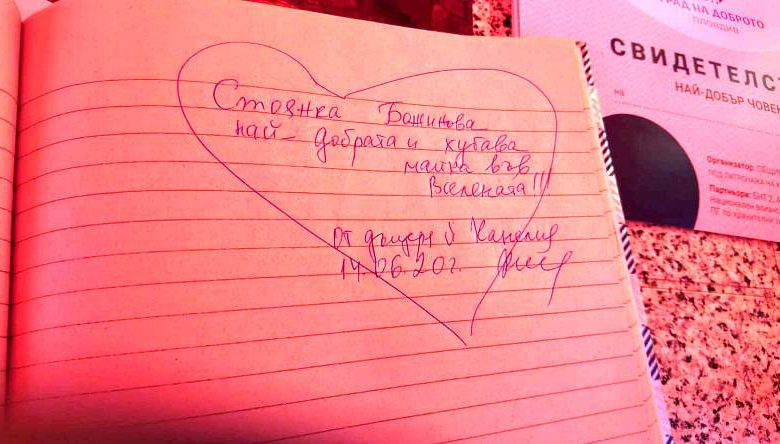 Стоянка Бажинова
най- добрата и хубава
майка във
Вселената!!!
от дъщеря ѝ Канелия
14.06.20г.
ГРАД НА ДОБРОТО
ПЛОВДИВ
СВИДЕТЕЛС
НАЙ-ДОБЪР ЧОВЕ
на
Организатор: ОБЩИ
ПОД ПАТРОНАЖА НА
Партньори: БНТ 2,